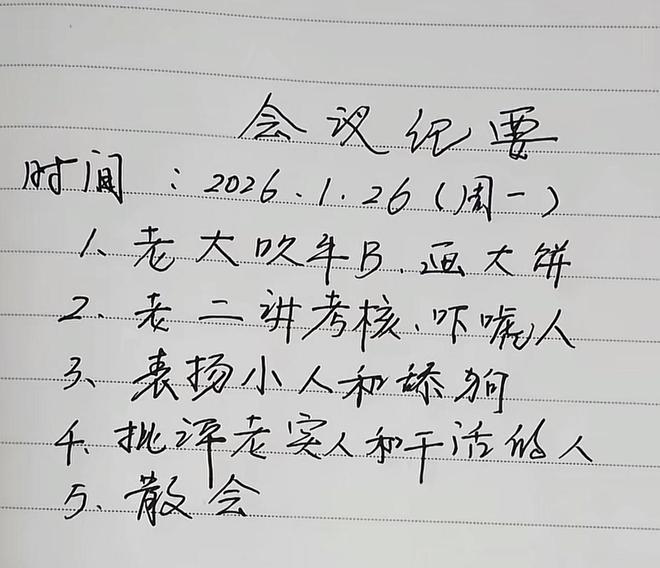 会议纪要
时间：2026.1.26（周一）
1、老大吹牛B、画大饼
2、老二讲考核、吓唬人
3、表扬小人和舔狗
4、批评老实人和干活的人
5、散会